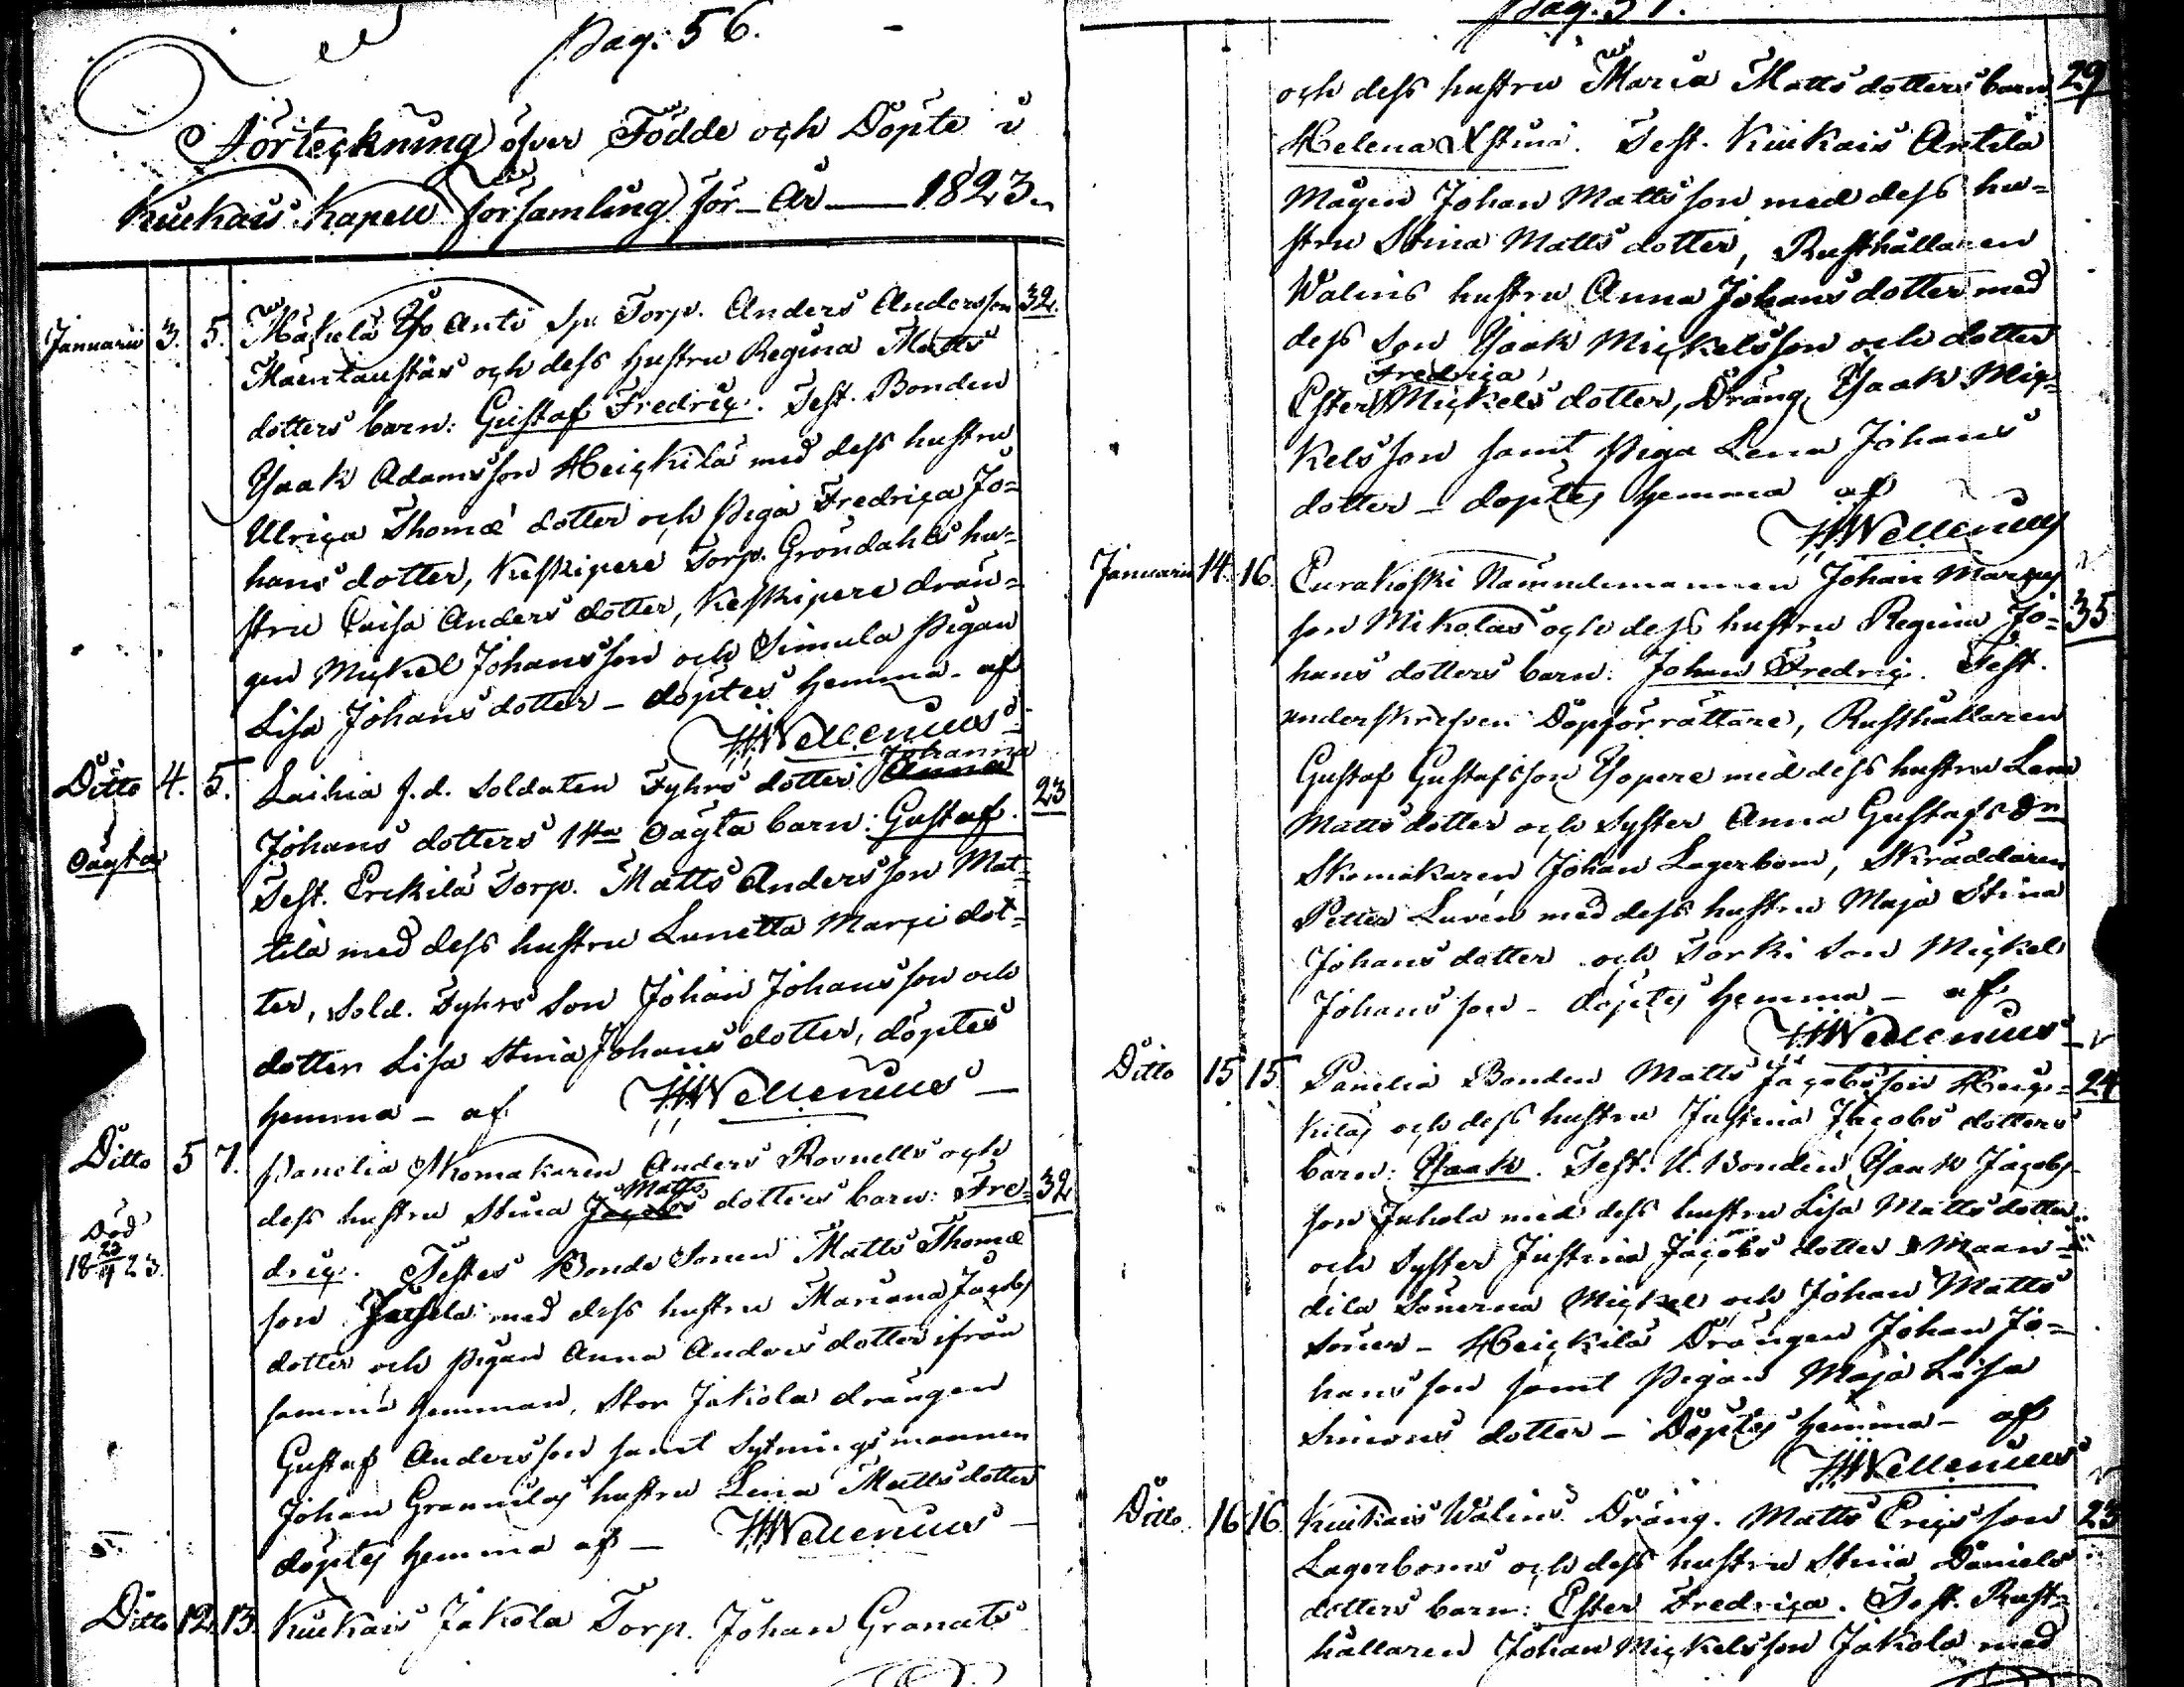 Pag. 56.
Förteckning öfver Födde och Döpte i
Kiukais Kapell församling för År 1823.
Januarii 3. 5. Anti Torp. Anders Andersson 32.
och dess hustru Regina Matts
dotters barn: Gustaf Fredric. Test. Bonden
Isaak Adamsson Heickilä med dess hustru
Ulrica Thomæ dotter och Piga Fredrica Jo=
hans dotter, Keskipere Torp. Gröndahls hu=
stru Caisa Anders dotter, Keskipere drän=
gen Mickel Johansson och Simula Pigan
Lisa Johans dotter - döptes hemma - af
Wellenius
Johanna
Ditto 4. 5. Laihia f.d. Soldaten Fyhrs dotter Anna
Johans dotters 1sta Oägta barn: Gustaf. 23
Oägta
Test. Erckilä Torp. Matts Andersson Mat=
tila med dess hustru Lunetta Marci dot=
ter, Sold. Fyhrs Son Johan Johansson och
dotter Lisa Stina Johans dotter, döptes
hemma - af Wellenius
Ditto 5 7. Panelia Skomakaren Anders Rosnells och
Matts
dess hustru Stina Jacobs dotters barn: Fre= 32
Död
18 23/4 23.
dric. Testes Bonde Sonen Matts Thomæ
son med dess hustru Mariana Jacobs
dotter och Pigan Anna Anders dotter ifrån
samma hemman, Stor Jakola drängen
Gustaf Andersson samt Sytningsmannen
Johan Grannilas hustru Lena Mattsdotter
döptes hemma af - Wellenius
Ditto 12. 13. Kiukais Jakola Torp. Johan Granats
Pag. 57.
och dess hustru Maria Matts dotters barn 29
Helena Xstina. Test. Kiukais Antila
Mågen Johan Mattsson med dess hu=
stru Stina Matts dotter, Rusthållaren
Walins hustru Anna Johans dotter med
dess Son Isaak Mickelsson och dotter
Fredrica
Ester Mickels dotter, Dräng Isaak Mic=
kelsson samt Piga Lena Johans
dotter - döptes hemma af
Wellenius
Januarii 14. 16. Eurakoski Nämndemannen Johan Marcus
son Mikolas och dess hustru Regina Jo= 35
hans dotters barn: Johan Fredric. Test.
underskrefven Döpförrättare, Rusthållaren
Gustaf Gustafsson Isopere med dess hustru Lena
Matts dotter och Syster Anna Gustafs dr
Skomakaren Johan Lagerbom, Skräddaren
Petter Lurén med dess hustru Maja Stina
Johans dotter och Torki Son Mickel
Johansson - döptes hemma - af
Wellenius
Ditto 15 15. Panelia Bonden Matts Jacobsson Heic= 24
kilas och dess hustru Justina Jacobs dotters
barn: Isaak. Test. U. Bonden Isaak Jacobs
son Juhola med dess hustru Lisa Matts dotter
och Syster Justina Jacobs dotter Maan=
dila Sönerna Mickel och Johan Matts
Söner - Heickilä Drängen Johan Jo=
hansson samt Pigan Maja Lisa
Simons dotter - Döptes hemma - af
Wellenius
Ditto 16 16 Kiukais Walins Dräng. Matts Ericsson 23
Lagerboms och dess hustru Stina Daniels
dotters barn: Ester Fredrica. Test. Rust=
hållaren Johan Mickelsson Jakola med